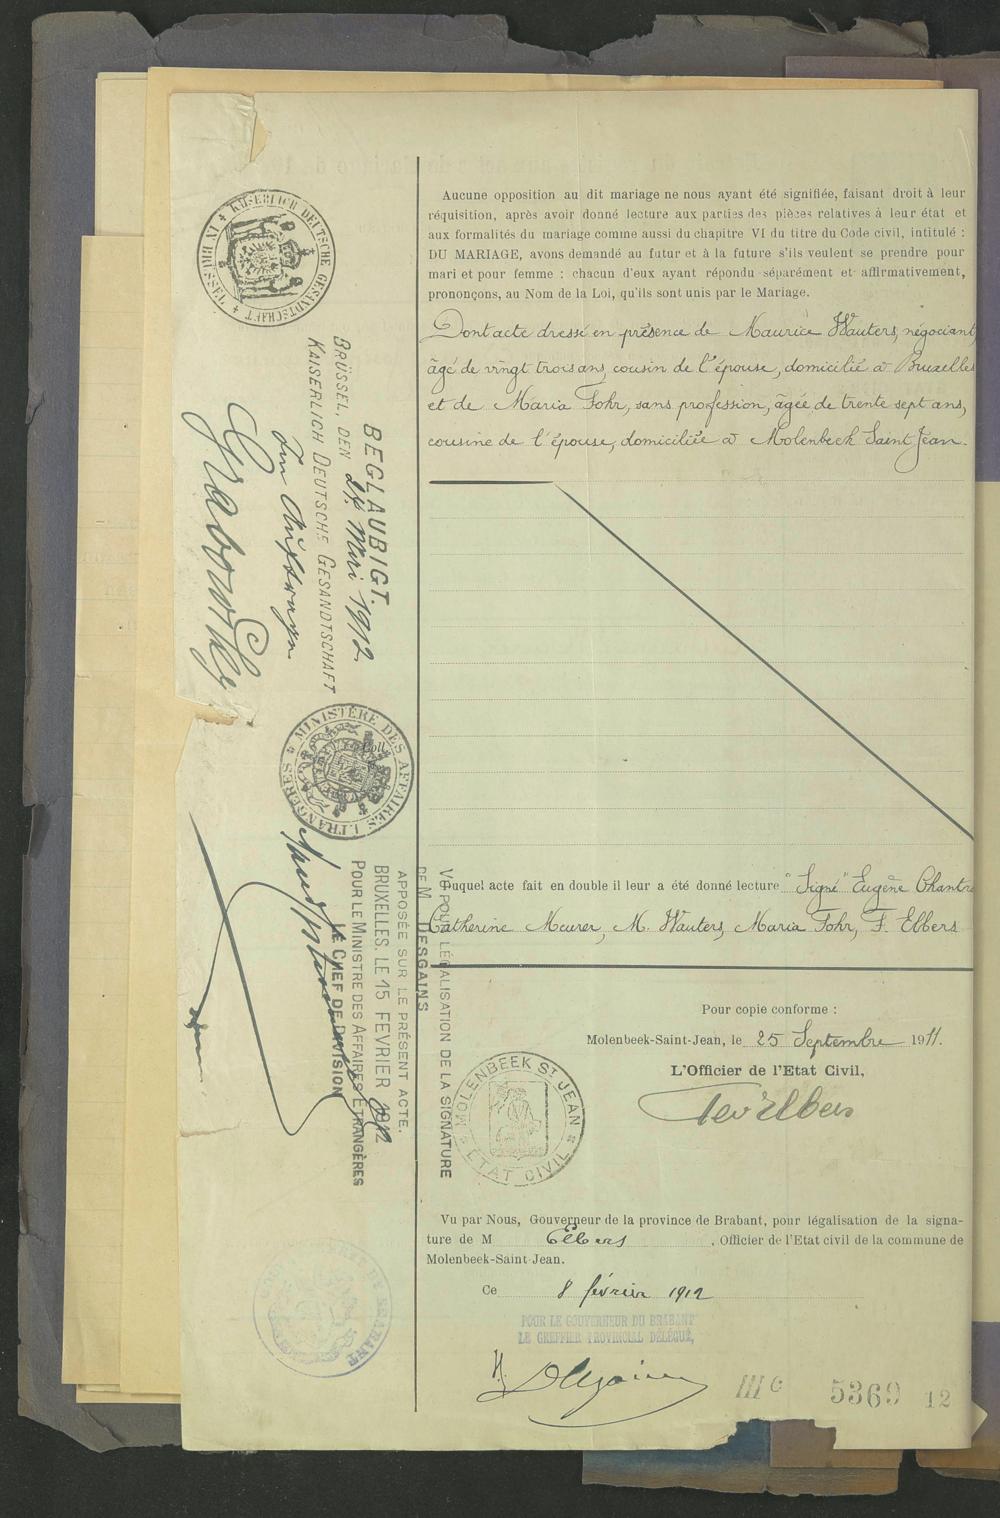 Aucune opposition au dit mariage ne nous ayant été signifiée, faisant droit à leur
réquisition, après avoir donné lecture aux parties des pièces relatives à leur état et
aux formalités du mariage comme aussi du chapitre VI du titre du Code civil, intitulé :
DU MARIAGE, avons demandé au futur et à la future s'ils veulent se prendre pour
mari et pour femme : chacun d'eux ayant répondu séparément et affirmativement,
prononçons, au Nom de la Loi, qu'ils sont unis par le Mariage.
Dont acte dressé en présence de Maurice Wauters, négociant,
âgé de vingt trois ans, cousin de l'épouse, domicilié à Bruxelles
et de Maria Fohr, sans profession, âgée de trente sept ans,
cousine de l'épouse, domiciliée à Molenbeek Saint Jean.
Duquel acte fait en double il leur a été donné lecture "Signé" Eugène Chantr
Catherine Meurer, M. Wauters, Maria Fohr, F. Elbers
Pour copie conforme :
Molenbeek-Saint-Jean, le 25 Septembre 1911.
L'Officier de l'Etat Civil,
MOLENBEEK ST JEAN * ÉTAT CIVIL *
Vu par Nous, Gouverneur de la province de Brabant, pour légalisation de la signa-
ture de M Elbers, Officier de l'Etat civil de la commune de
Molenbeek-Saint-Jean.
Ce 8 février 1912
POUR LE GOUVERNEUR DU BRABANT
LE GREFFIER PROVINCIAL DÉLÉGUÉ,
III C 5369 12
KAISERLICH DEUTSCHE GESANDTSCHAFT * IN BRÜSSEL *
BEGLAUBIGT.
BRÜSSEL, DEN 2 1912.
KAISERLICH DEUTSCHE GESANDTSCHAFT
Im Auftrage
Grabowsky
MINISTÈRE DES AFFAIRES ETRANGÈRES *
Coll.
VU POUR LÉGALISATION DE LA SIGNATURE
DE M DESGAINS
APPOSÉE SUR LE PRÉSENT ACTE.
BRUXELLES, LE 15 FEVRIER 1912
POUR LE MINISTRE DES AFFAIRES ETRANGÈRES
LE CHEF DE DIVISION
BRABANT